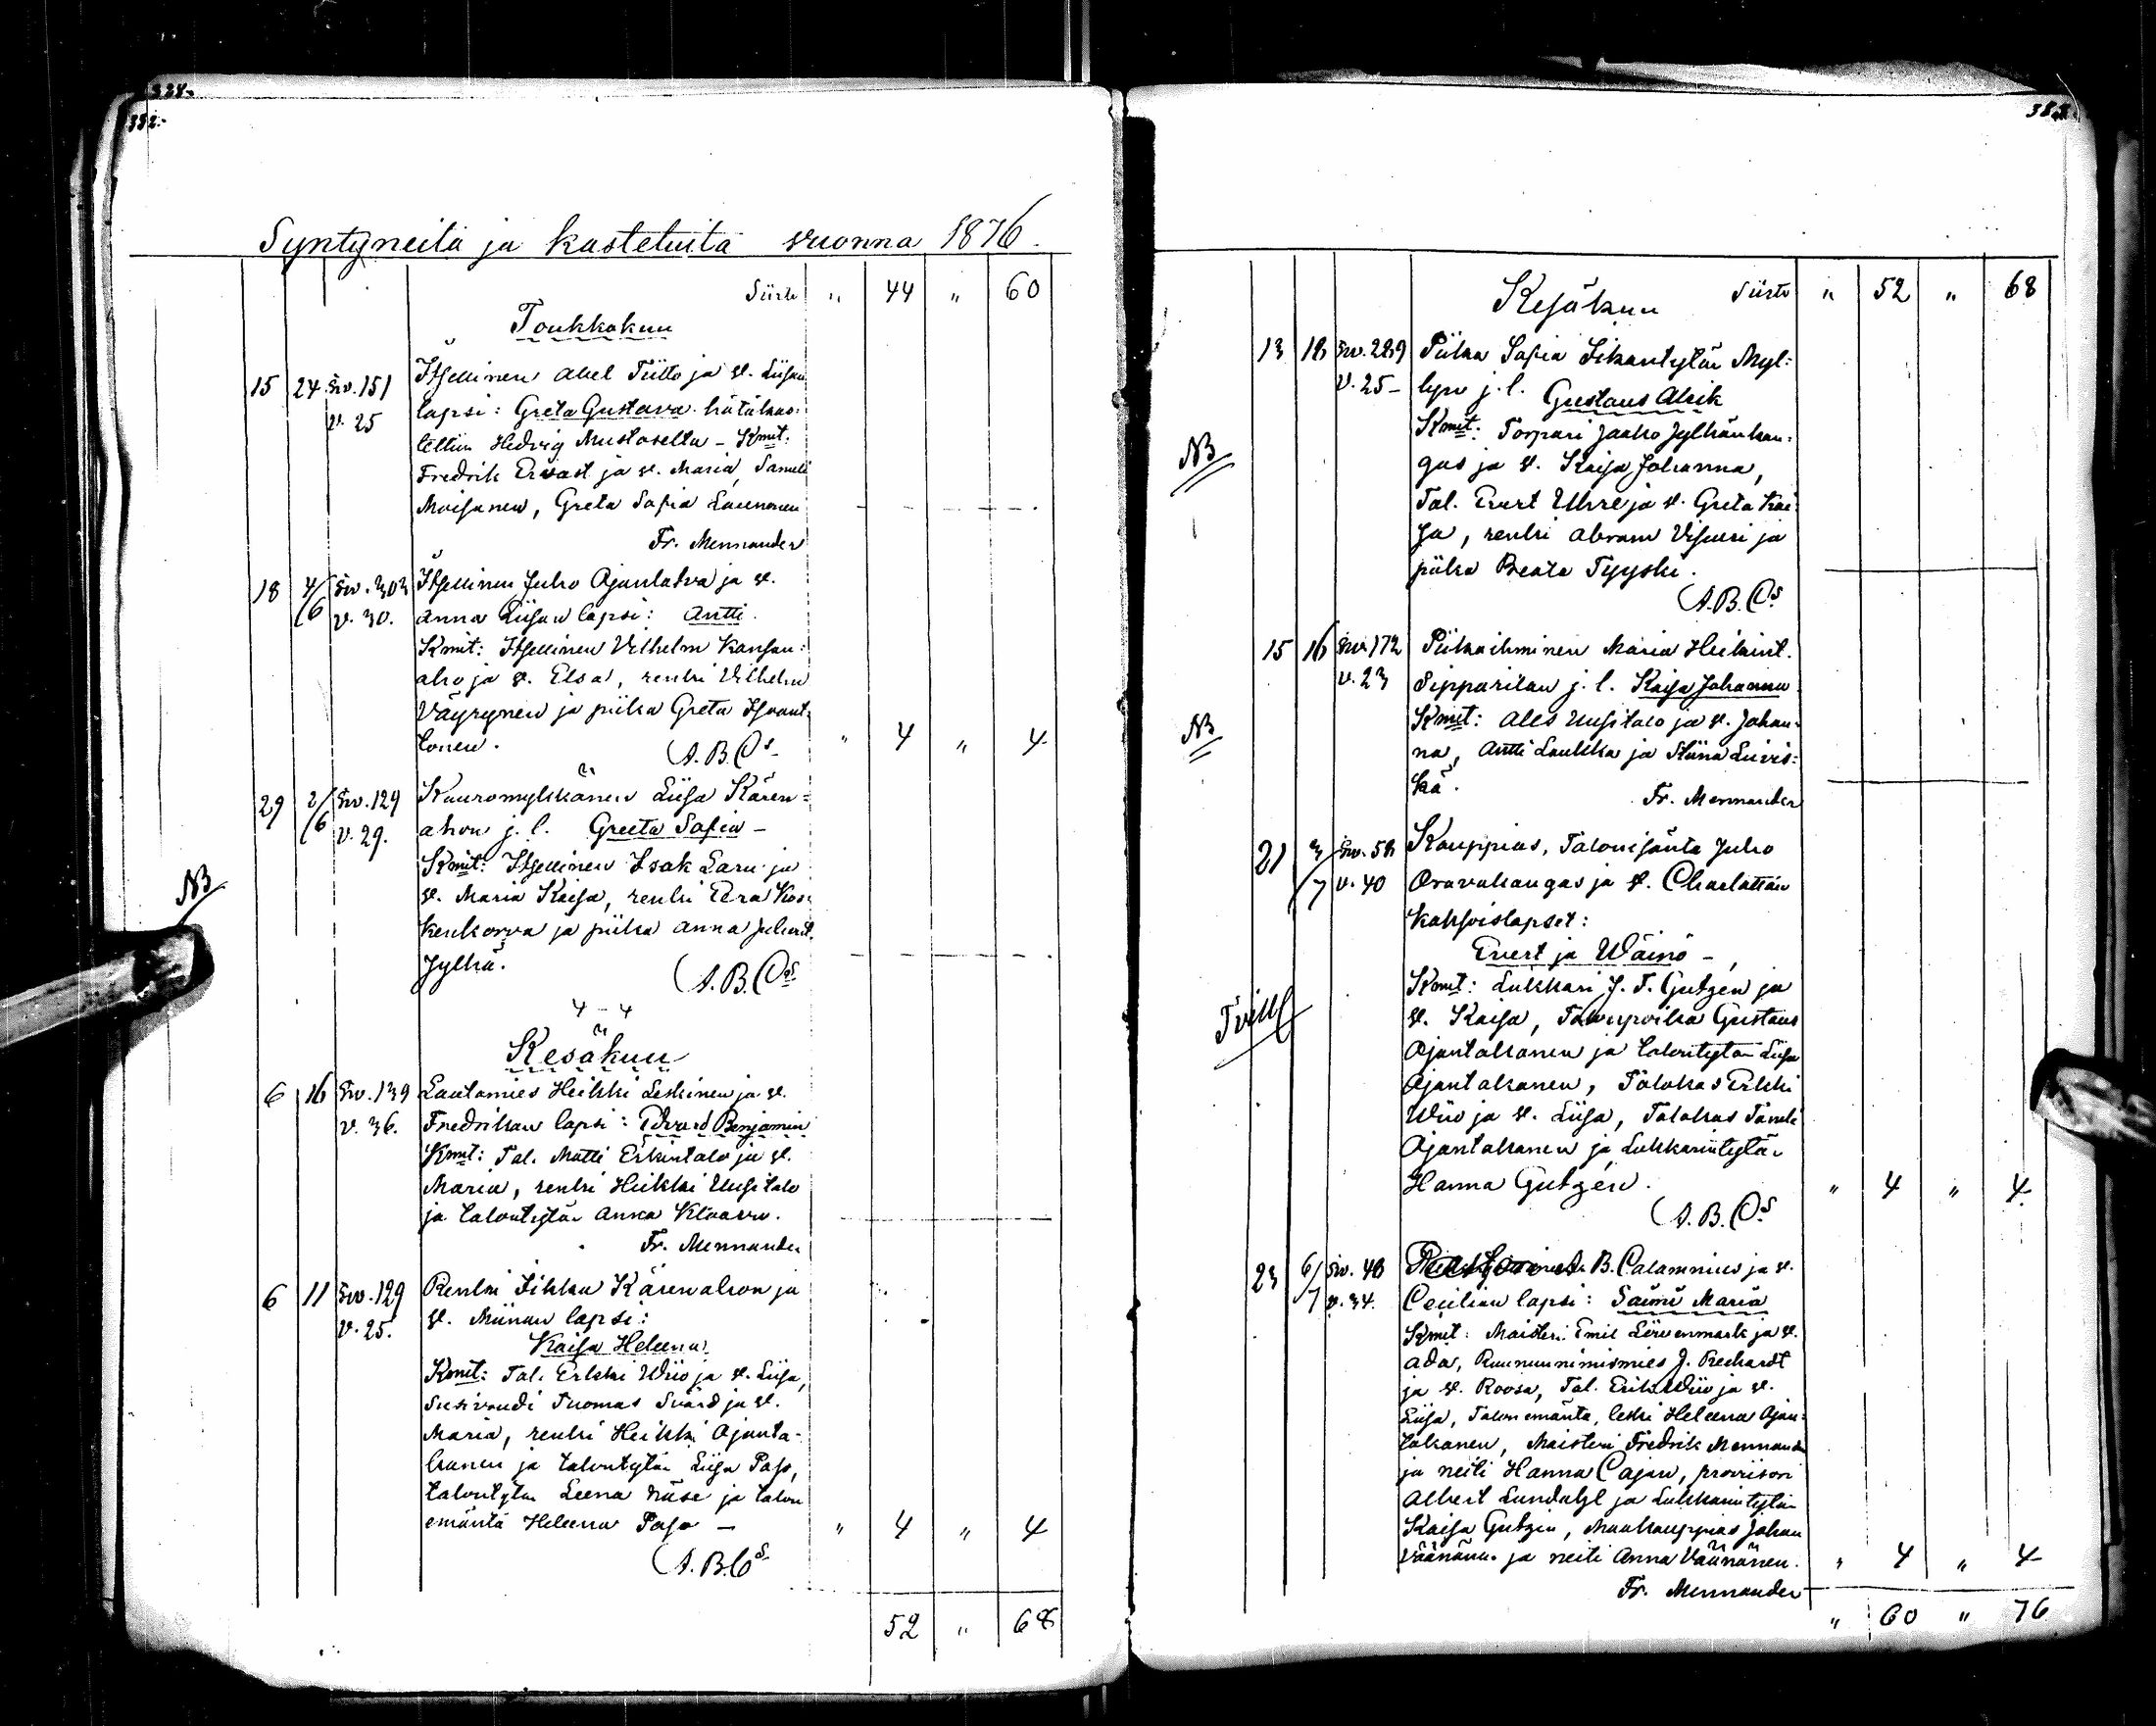 324.
332.
Syntyneitä ja kastetuita vuonna 1876.
Siirto " 44 " 60
Toukkokuu
15 24 Siv. 151 Itsellinen Abel Tiitto ja v. Liisan
v. 25 lapsi: Greta Gustava hätäkas-
tettiin Hedvig Mustoselta - Kmit:
Fredrik Ervast ja v. Maria, Samuli
Moisanen, Greta Sofia Launonen
Fr. Mennander
18 4/6 Siv. 303 Itsellinen Juho Ajanlatva ja v.
v. 30. Anna Liisan lapsi: Antti.
Kmit: Itsellinen Vilhelm Kansan-
aho ja v. Elsa, renki Vilhelm
Väyrynen ja piika Greta
tonen. A.B.Cs " 4 " 4
29 2/6 Siv. 129 Kuuromykkänen Liisa Kären-
v. 29. ahon j. l. Greeta Sofia -
Kmit: Itsellinen Isak Laru ja
v. Maria Kaisa, renki Eera Kos-
kenkorva ja piika Anna Juhont.
NB
Jylhä. A.B.Cs
4 - 4
Kesäkuu
6 16 Siv. 139 Lautamies Heikki Leskinen ja v.
v. 36. Fredrikan lapsi: Edvard Benjamin
Kmit: Tal. Matti Erkintalo ja v.
Maria, renki Heikki Uusitalo
ja talontytär Anna Kivarvo.
Fr. Mennander
6 11 Siv. 129 Renki Iikka Kärenahon ja
v. 25. v. Miinan lapsi:
Kaisa Heleena
Kmit: Tal. Erkki Wiio ja v. Liisa,
Susivouti Tuomas Svärd ja v.
Maria, renki Heikki Ajanta-
kanen ja talontytär Liisa Paso,
talontytär Leena ja talon
emäntä Heleena Paso - " 4 " 4
A.B.Cs
52 " 68
383.
Kesäkuu Siirto " 52 " 68
13 18 Siv. 289 Piika Sofia Iikantytär Myl-
v. 25 - lyn j. l. Gustaus Alrik
Kmit: Torpari Jaako Jylhänkan-
NB
gas ja v. Kaisa Johanna,
Tal. Evert Uhre ja v. Greta Kai-
sa, renki Abram Visuri ja
piika Beata Tyyski.
A.B.Cs
15 16 Siv. 172 Piikaihminen Maria Heikint.
v. 23 Sipparilan j. l. Kaisa Johanna
NB
Kmit: Ales Uusitalo ja v. Johan-
na, Antti Laukka ja Stiina Leivis-
kä.
Fr. Mennander
21 3/7 Siv. 58 Kauppias, Talonisäntä Juho
v. 40 Oravakangas ja v. Charlottan
kaksoislapset:
Evert ja Wäinö -
Tvill
Kmit: Lukkari J. F. Gutzén ja
v. Kaisa, Talonpoika Gustaus
Ajantakanen ja talontytär Liisa
Ajantakanen, Talokas Erkki
Wiio ja v. Liisa, Talokas Taneli
Ajantakanen ja Lukkarintytär
Hanna Gutzén. " 4 " 4
A.B.Cs
23 6/7 Siv. 48 B. Calamnius ja v.
v. 34. Cecilian lapsi: Saimi Maria
Kmit: Maisteri Emil Lövenmark ja v.
Ada, Ruununnimismies J. Reckardt
ja v. Roosa, Tal. Erik Wiio ja v.
Liisa, Talon emäntä, leski Heleena Ajan-
takanen, Maisteri Fredrik Mennander
ja neiti Hanna Cajan, proviisori
Albert Lundahl ja Lukkarintytär
Kaisa Gutzén, Maakauppias Johan
Väänänen ja neiti Anna Väänänen. " 4 " 4
Fr. Mennander
" 60 " 76